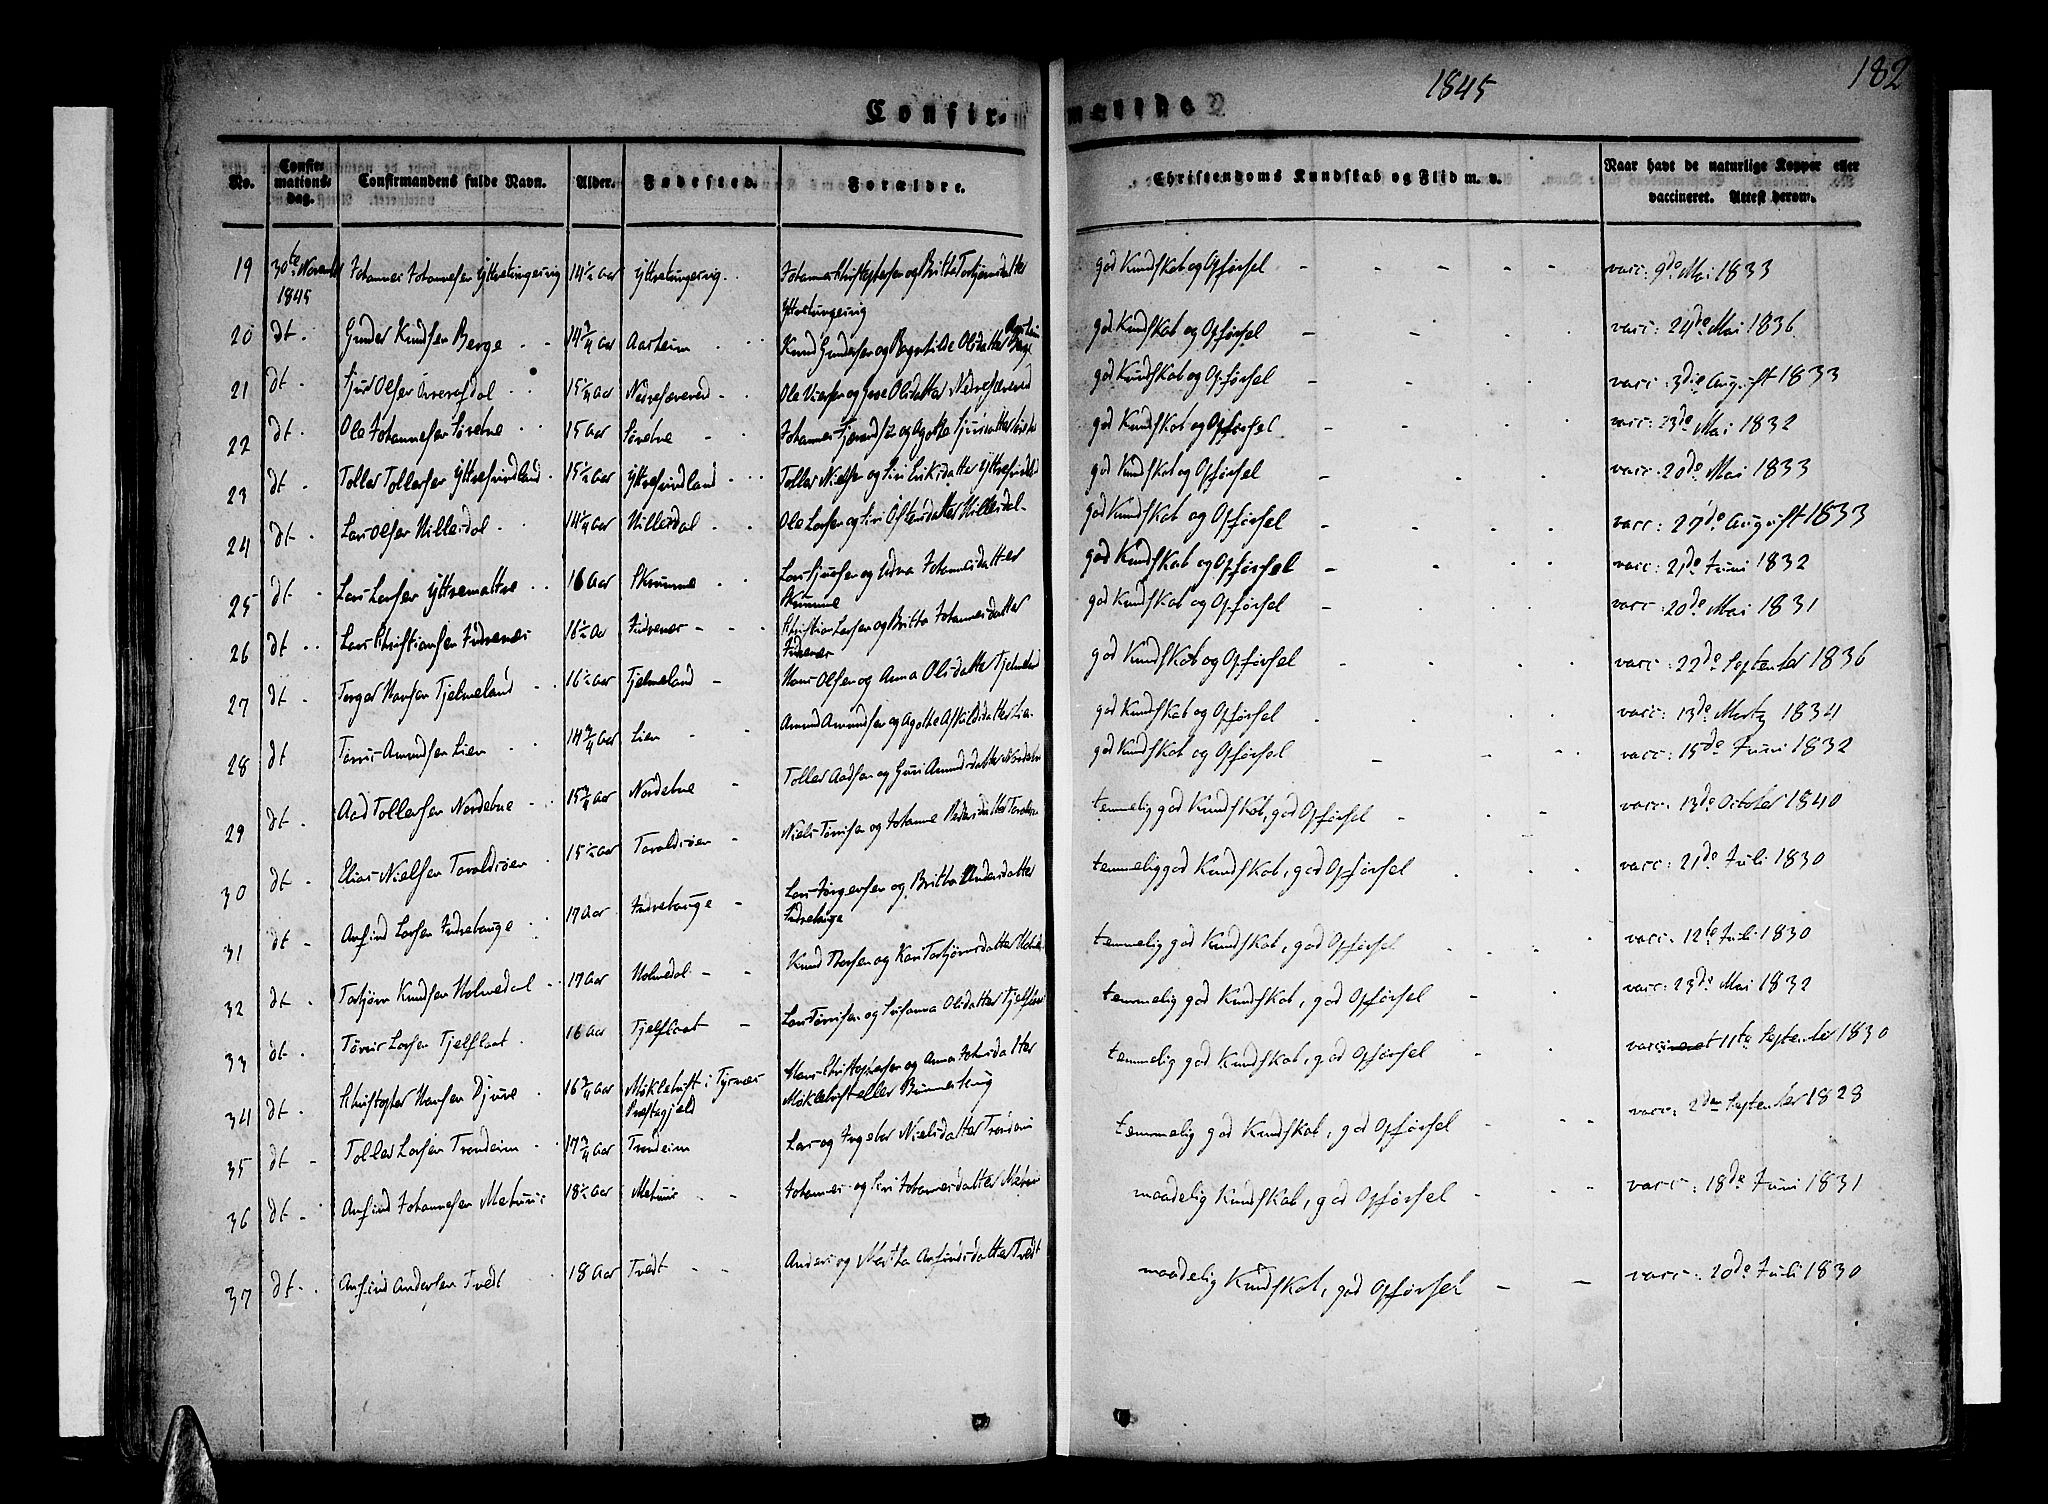 1845
182
Confirmerede
No. Confirmations-dag. Confirmandens fulde Navn. Alder. Fødested. Forældre. Christendoms Kundskab og Flid m. v. Naar havt de naturlige Kopper eller vaccineret. Attest herom.
19 30te Novemb 1845 Johannes Johannesen Yttretungesvig 14½ Aar Yttretungesvig. Johannes Christophersen og Britta Torbjørnsdatter Yttretungesvig god Kundskab og Opførsel - - - - vacc: 9de Mai 1833
20 dt. Gunder Knudsen Berge 14¾ Aar Aarheim Knud Gundersen og Bagnhilde Olsdatter Berge god Kundskab og Opførsel vacc: 24de Mai 1836
21 dt. Sjur Olsen 15¼ Aar Ole og Olsdatter god Kundskab og Opførsel vacc: 3die August 1833
22 dt. Ole Johannesen Sørebøe 15 Aar Sørebøe Johannes og Agatte Sjursdatter god Kundskab og Opførsel vacc: 23de Mai 1832
23 dt. Tollef Tollefsen Yttresvindland 15½ Aar Yttresvindland Tollef Nielsen og Siri Eriksdatter Yttresvindld god Kundskab og Opførsel vacc: 20de Mai 1833
24 dt. Lars Olsen Hillesdal 14¼ Aar Hillesdal Ole Larsen og Siri Østensdatter Hillesdal god Kundskab og Opførsel vacc: 27de August 1833
25 dt. Lars Larsen Yttrematre 16 Aar Skrumme Lars Sjursen og Johannesdatter Skrumme god Kundskab og Opførsel vacc: 21de Juni 1832
26 dt. Lars Christiansen Indrenæs 16½ Aar Indrenæs Christian Larsen og Britta Johannesdatter Indrenæs god Kundskab og Opførsel vacc: 20de Mai 1831
27 dt. Torger Hansen Tjelmeland 16½ Aar Tjelmeland Hans Olsen og Anna Olsdatter Tjelmeland god Kundskab og Opførsel vacc: 22de September 1836
28 dt Amundsen Lien 14¾ Aar Lien Amund Amundsen og Agatte Lien god Kundskab og Opførsel vacc: 13de Martz 1834
29 dt. Aad Tollefsen Nordebøe 15¾ Aar Nordebøe Tollef Aadsen og Guri Amundsdatter Nordebøe god Kundskab og Opførsel vacc: 15de Juni 1832
30 dt. Elias Nielsen Taraldsøen 15½ Aar Taraldsøen Niels Tørrisen og Johanne Pedersdatter Taraldsøen temmelig god Kundskab, god Opførsel vacc: 13de October 1840
31 dt. Anfind Larsen Indrehauge 17 Aar Indrehauge Lars Jørgensen og Britta Andersdatter Indrehauge temmelig god Kundskab, god Opførsel vacc: 21de Juli 1830
32 dt. Torbjørn Knudsen Holmedal 17 Aar Holmedal Knud Thorsen og Kari Torbjørnsdatter temmelig god Kundskab, god Opførsel vacc: 12te Juli 1830
33 dt. Tørris Larsen Tjelflaat 16 Aar Tjelflaat Lars Tørrisen og Susanna Olsdatter Tjelflaat temmelig god Kundskab, god Opførsel vacc: 23de Mai 1832
34 dt. Christopher Hansen Djuve 16¾ Aar Mækletuft i Tysnæs Præstegjeld Hans Christophersen og Anna Johnsdatter Mækletuft eller temmelig god Kundskab, god Opførsel vaccineret 11te September 1830
35 dt. Tollef Larsen Trondeim 17¾ Aar Trondeim Lars og Ingebor Nielsdatter Trondeim temmelig god Kundskab, god Opførsel vacc: 2den September 1828
36 dt. Anfind Johannesen Mehuus 18½ Aar Mehuus Johannes og Siri Johannesdatter Mehuus maadelig Kundskab, god Opførsel vacc: 18de Juni 1831
37 dt. Anfind Andersen Tvedt 18 Aar Tvedt Anders og Martha Anfindsdatter Tvedt maadelig Kundskab, god Opførsel vacc: 20de Juli 1830